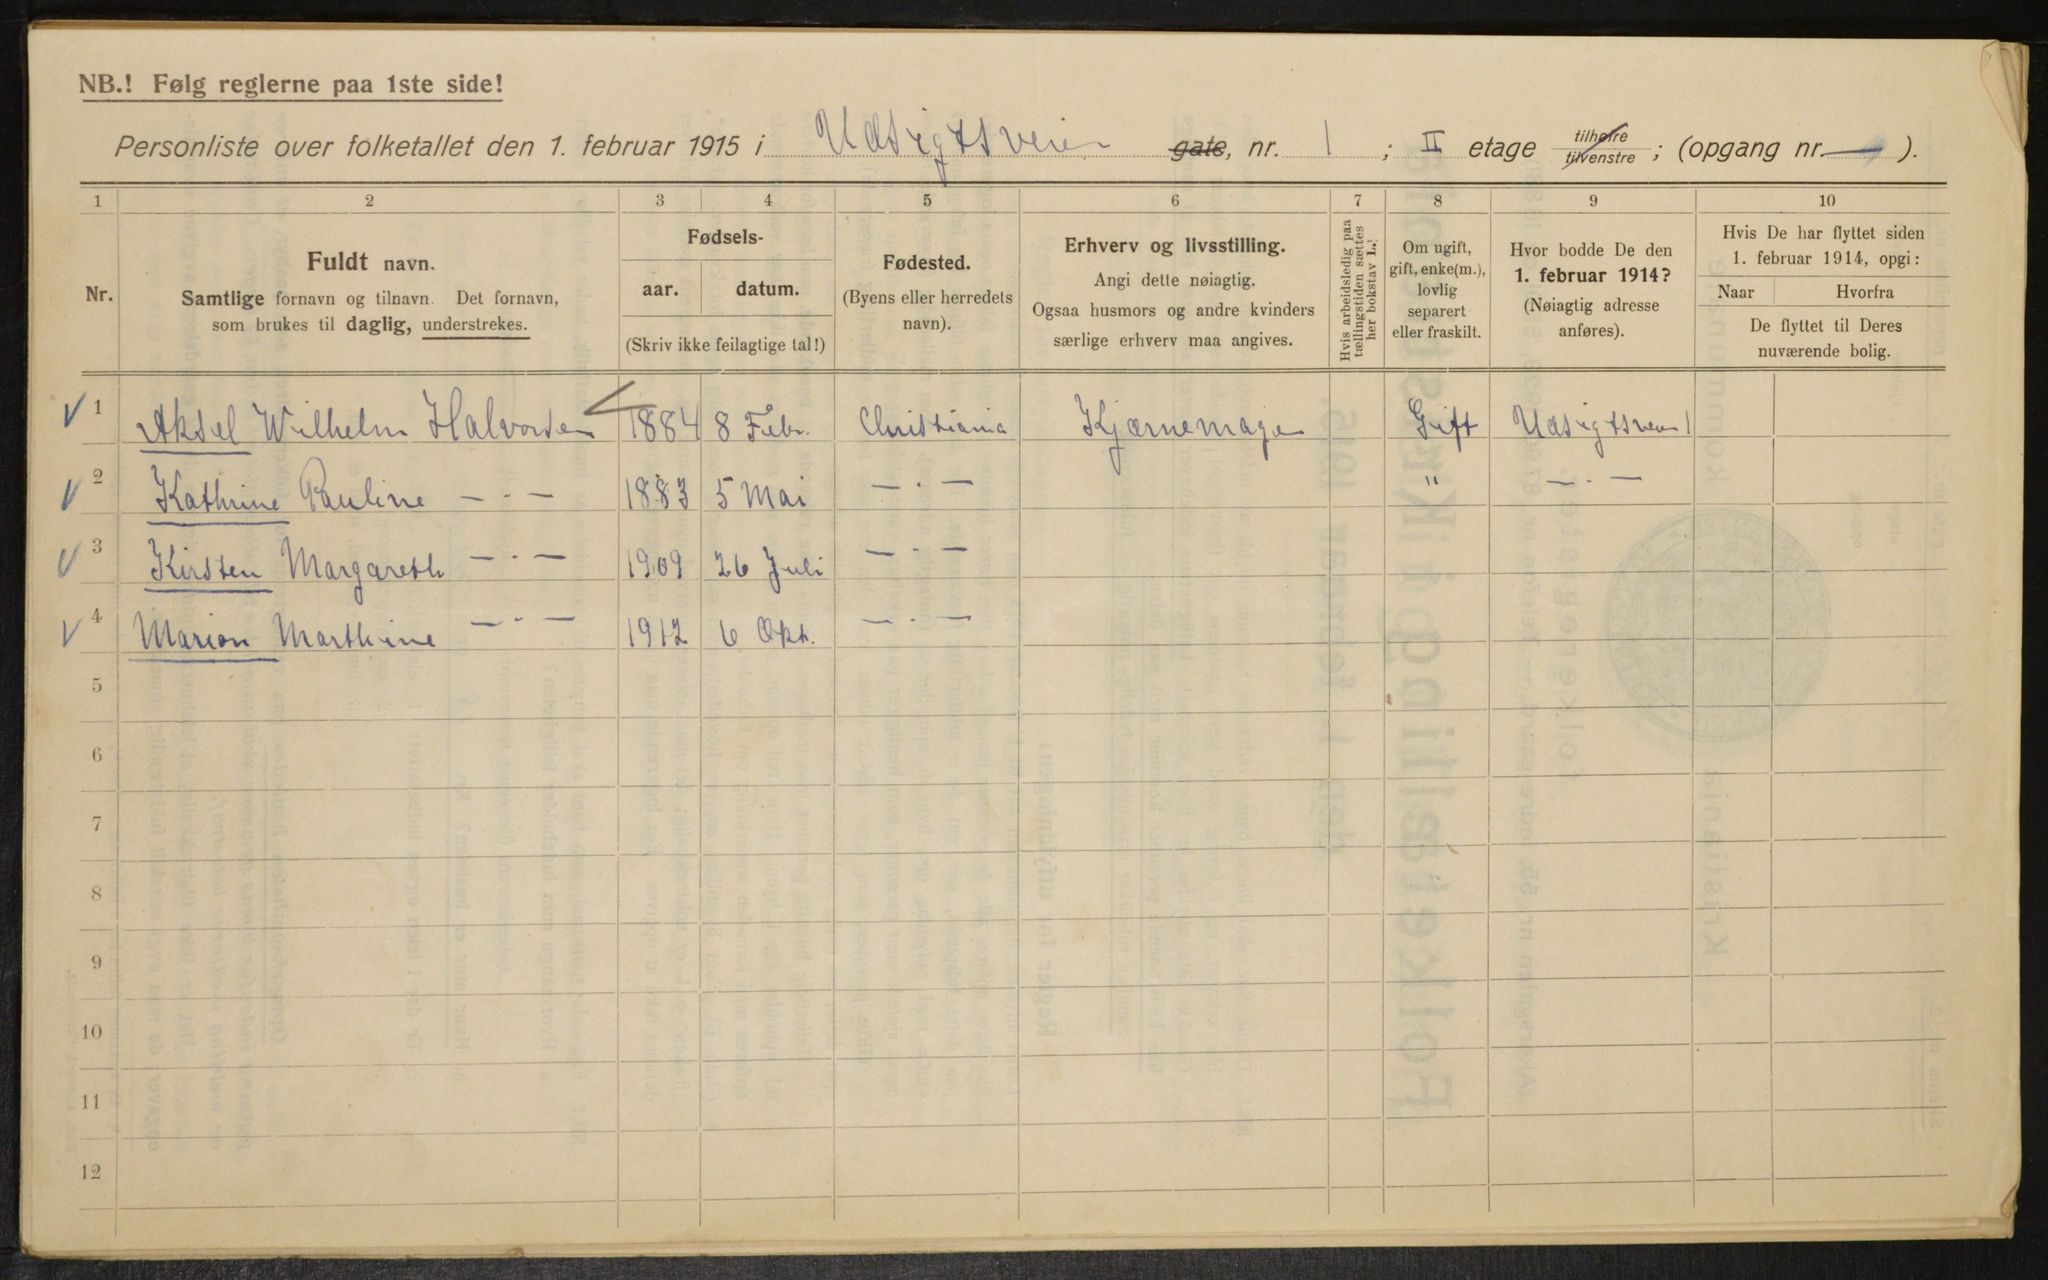 NB.! Følg reglerne paa 1ste side!
Personliste over folketallet den 1. februar 1915 i Udsigtsveien gate, nr. 1 ; II etage tilhøire tilvenstre ; (opgang nr. — ).
1 2 3 4 5 6 7 8 9 10
Nr.
Fuldt navn.
Samtlige fornavn og tilnavn. Det fornavn,
som brukes til daglig, understrekes.
Fødsels-
aar. datum.
(Skriv ikke feilagtige tal!)
Fødested.
(Byens eller herredets
navn).
Erhverv og livsstilling.
Angi dette nøiagtig.
Ogsaa husmors og andre kvinders
særlige erhverv maa angives.
Hvis arbeidsledig paa
tællingstiden sættes
her bokstav L.
Om ugift,
gift, enke(m.),
lovlig
separert
eller fraskilt.
Hvor bodde De den
1. februar 1914?
(Nøiagtig adresse
anføres).
Hvis De har flyttet siden
1. februar 1914, opgi:
Naar Hvorfra
De flyttet til Deres
nuværende bolig.
1 Aksel Wilhelm Halvorsen 1884 8 Febr. Christiania Kjærnemager Gift Udsigtsveien 1
2 Kathrine Pauline — · — 1883 5 Mai — · — " — · —
3 Kirsten Margareth — · — 1909 26 Juli — · —
4 Marion Marthine — · — 1912 6 Okt. — · —
5
6
7
8
9
10
11
12